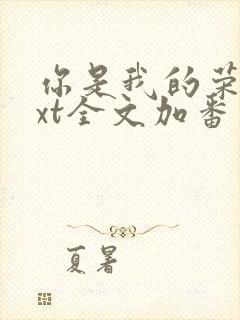 你是我的荣
xt全文加番
夏暑